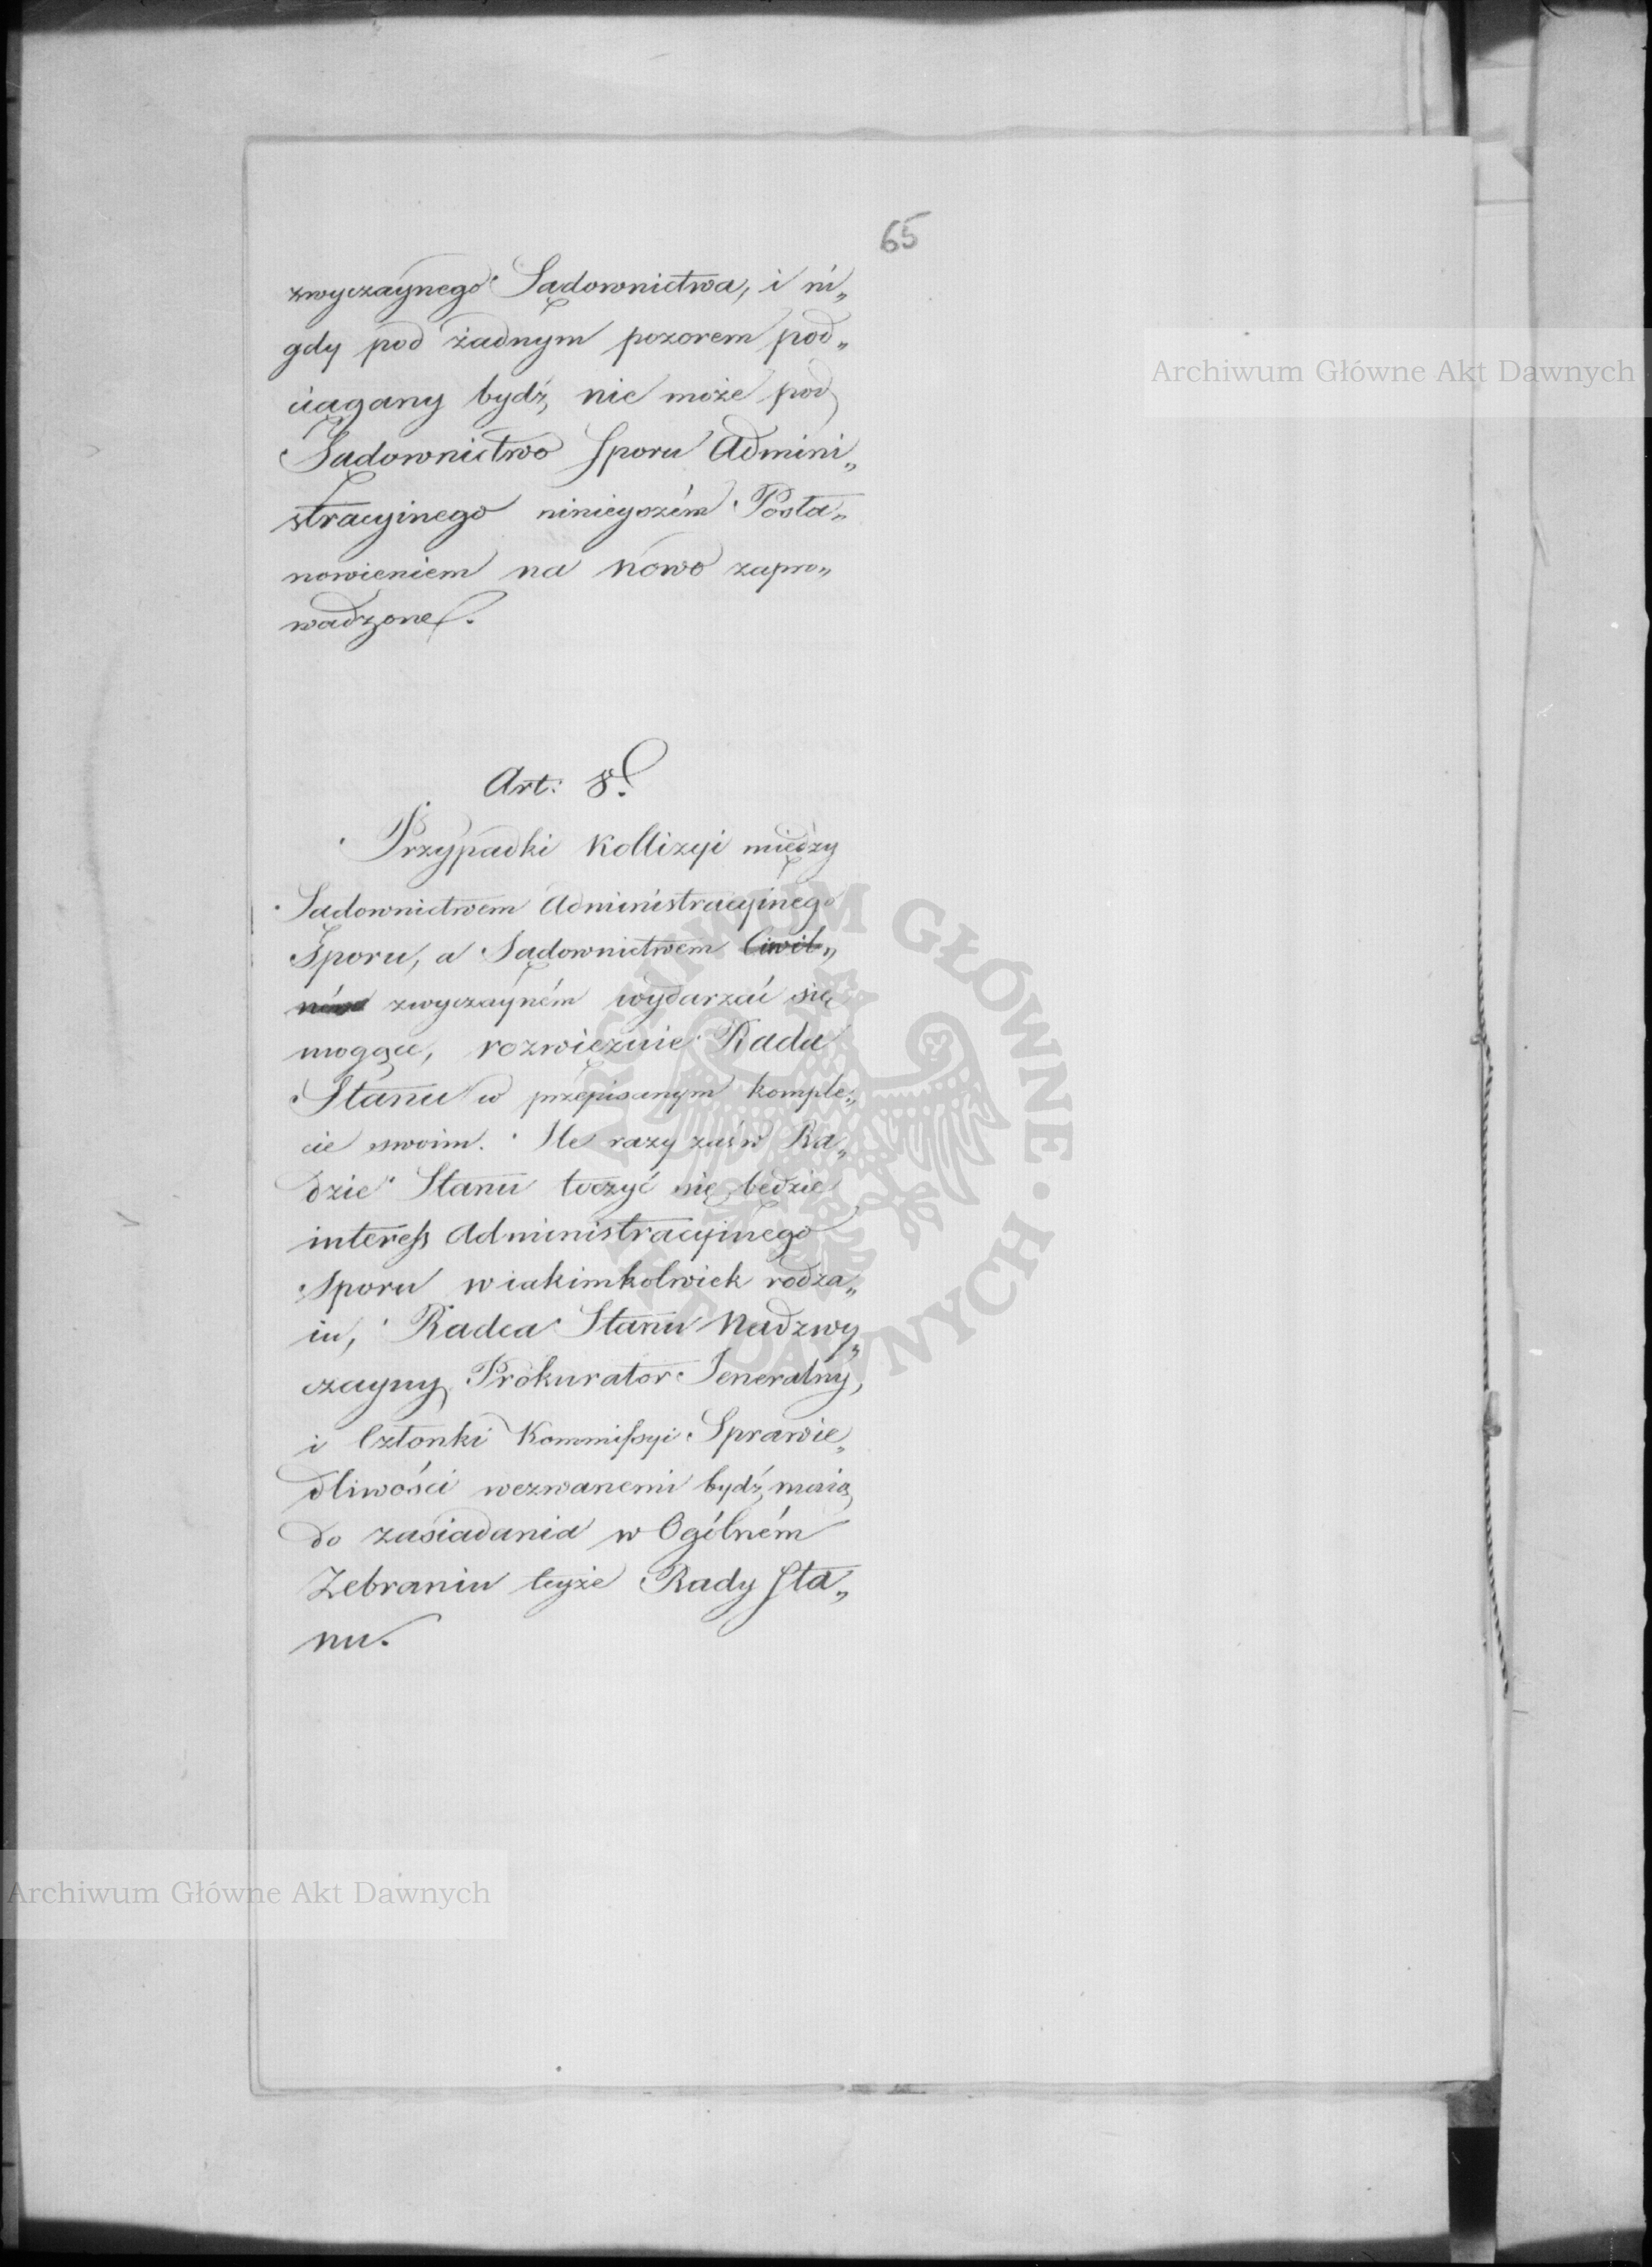 65
zwyczaynego Sądownictwa, i ni„
gdy pod żadnym pozorem pod„
ciagany bydź nie może pod
Sądownictwo Sporu Admini„
stracyinego ninieyszém Posta„
nowieniem na nowo zapro„
wadzone.
Art: 8.
Przypadki Kollizyi między
Sądownictwem Administracyinego
Sporu, a Sądownictwem Ciwil„
ném zwyczayném wydarzać się
mogące, rozwięzuie Rada
Stanu w przepisanym komple„
cie swoim. Ile razy zaś w Ra„
dzie Stanu toczyć się będzie
interess Administracyinego
Sporu w iakimkolwiek rodza„
iu, Radca Stanu Nadzwy„
czayny Prokurator Jeneralny,
i Członki Kommissyi Sprawie„
dliwości wezwanemi bydź maią
do zasiadania w Ogólném
Zebraniu teyże Rady Sta„
nu.
Archiwum Główne Akt Dawnych
Archiwum Główne Akt Dawnych
ARCHIWUM GŁÓWNE · AKT DAWNYCH